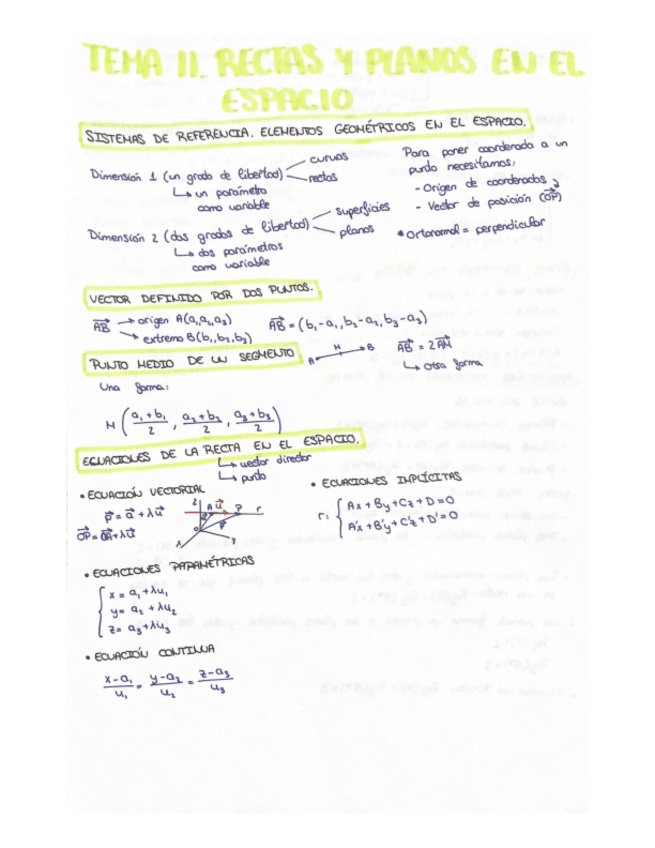 TEMA 11. RECTAS Y PLANOS EN EL
ESPACIO
SISTEMAS DE REFERENCIA. ELEMENTOS GEOMÉTRICOS EN EL ESPACIO.
Dimensión 1 (un grado de libertad) curvas
rectas
↳ un parámetro
como variable
Dimensión 2 (dos grados de libertad) superficies
planos
↳ dos parámetros
como variable
Para poner coordenada a un
punto necesitamos:
- Origen de coordenadas y
- Vector de posición (OP)
* Ortonormal = perpendicular
VECTOR DEFINIDO POR DOS PUNTOS.
AB → origen A(a₁,a₂,a₃)
→ extremo B(b₁,b₂,b₃)
AB = (b₁-a₁, b₂-a₂, b₃-a₃)
PUNTO MEDIO DE UN SEGMENTO
A M B AB = 2AM
↳ otra forma
Una forma:
M (a₁+b₁/2, a₂+b₂/2, a₃+b₃/2)
ECUACIONES DE LA RECTA EN EL ESPACIO.
↳ vector director
↳ punto
• ECUACIÓN VECTORIAL
p = a + λu
OP = OA + λu
z A u P r
a p
o
x y
• ECUACIONES PARAMÉTRICAS
x = a₁ + λu₁
y = a₂ + λu₂
z = a₃ + λu₃
• ECUACIÓN CONTINUA
x-a₁/u₁ = y-a₂/u₂ = z-a₃/u₃
• ECUACIONES IMPLÍCITAS
r: { Ax + By + Cz + D = 0
A'x + B'y + C'z + D' = 0